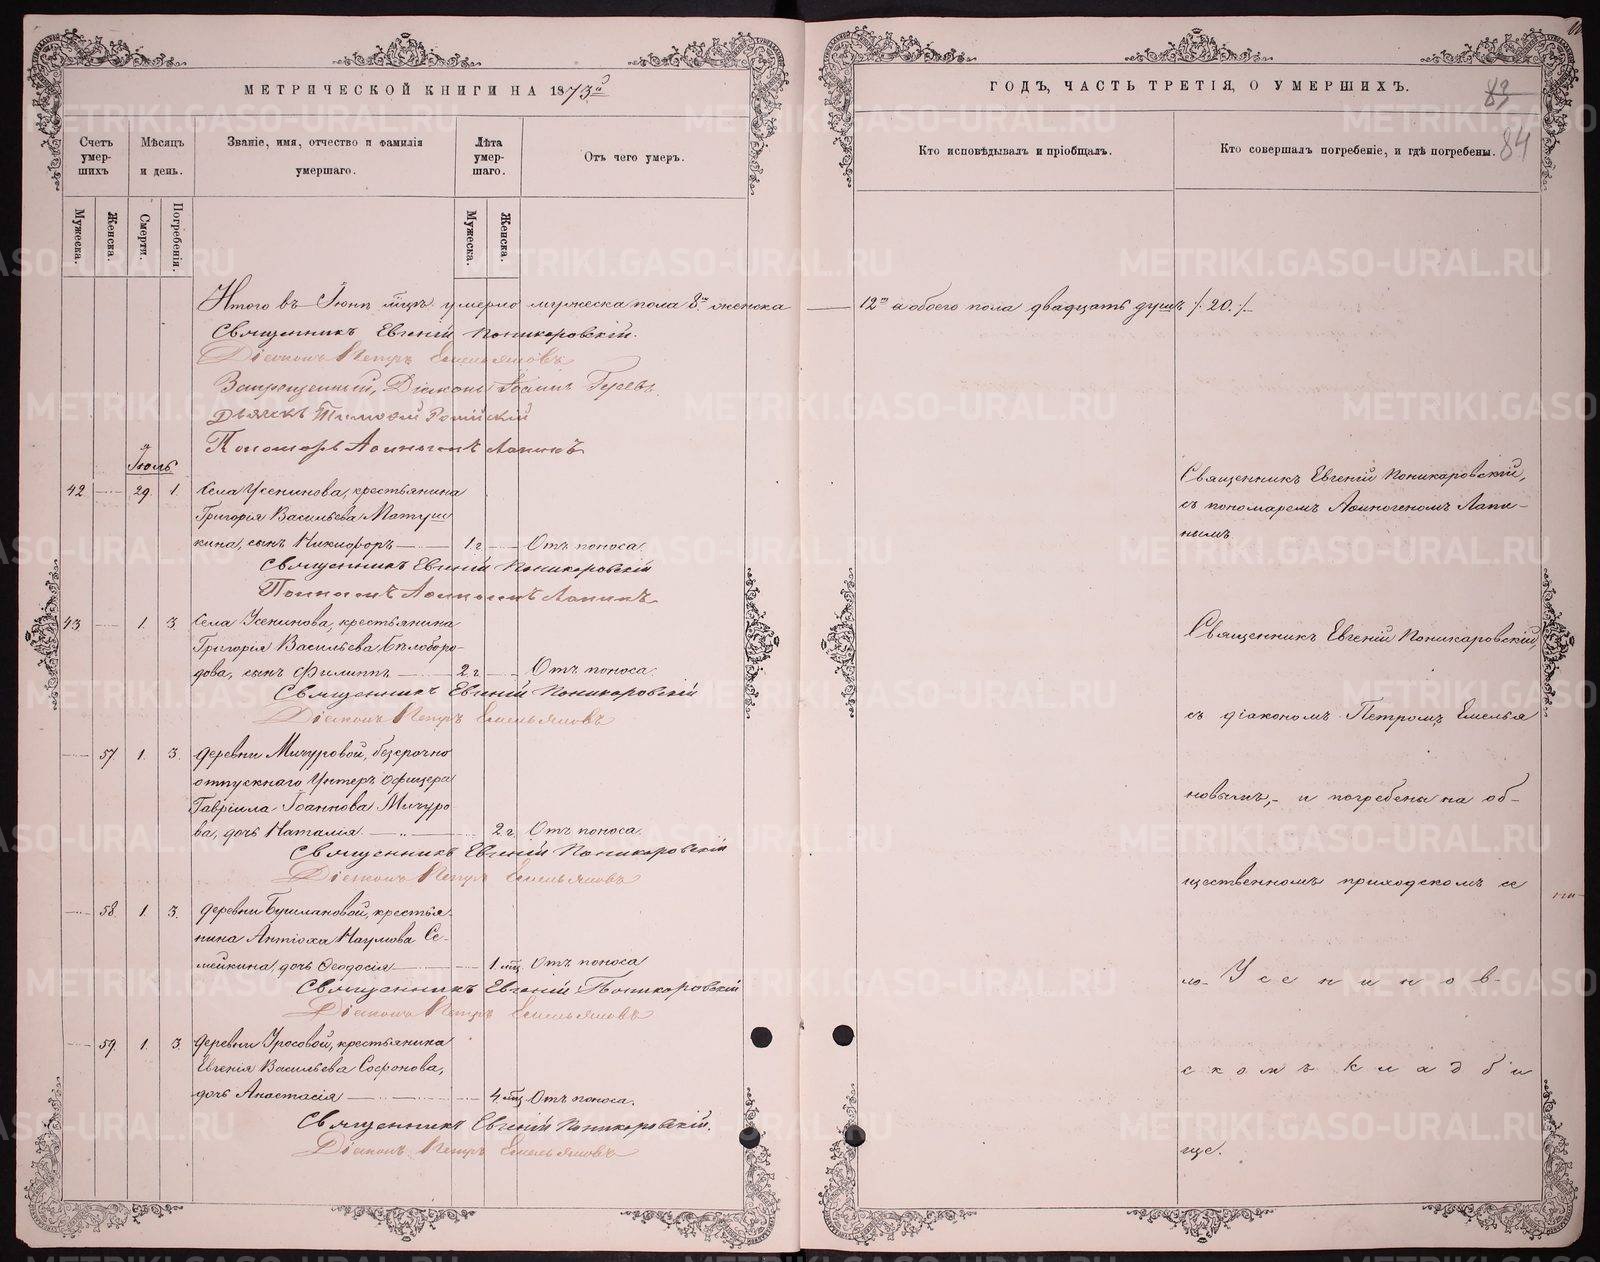 МЕТРИЧЕСКОЙ КНИГИ НА 1873й
Счетъ умершихъ
Мѣсяцъ и день.
Званіе, имя, отчество и фамилія умершаго.
Лѣта умершаго.
Отъ чего умеръ.
Мужеска.
Женска.
Смерти.
Погребенія.
Мужеска.
Женска.
Итого въ Іюнѣ мцѣ умерло мужеска пола 8. женска
Священникъ Евгеній Поникаровскій.
Діаконъ Петръ Емельяновъ
Запрещенный, Діаконъ Іоаннъ Гусевъ.
Дьячекъ Тимофей
Пономарь Аѳиногенъ Лапинъ
Іюль
42 29. 1. Села Усенинова, крестьянина
Григорія Васильева Матуш
кина, сынъ Никифоръ 1 г. Отъ поноса.
Священникъ Евгеній Поникаровскій
Пономарь Аѳиногенъ Лапинъ
43 1. 3. Села Усенинова, крестьянина
Григорія Васильева Бѣлоборо-
дова, сынъ Филиппъ 2 г. Отъ поноса.
Священникъ Евгеній Поникаровскій
Діаконъ Петръ Емельяновъ
57. 1. 3. Деревни Мичуровой, безсрочно
отпускнаго Унтеръ Офицера
Гавріила Іоаннова Мичуро
ва, дочь Наталія. 2 г. Отъ поноса.
Священникъ Евгеній Поникаровскій
Діаконъ Петръ Емельяновъ
58. 1. 3. Деревни Бушлановой, крестья-
нина Антіоха Наумова Се-
мейкина, дочь Ѳеодосія 1 мц. Отъ поноса
Священникъ Евгеній Поникаровскій
Діаконъ Петръ Емельяновъ
59. 1. 3. Деревни Уросовой, крестьянина
Евгенія Васильева Софонова,
дочь Анастасія 4 мц Отъ поноса.
Священникъ Евгеній Поникаровскій.
Діаконъ Петръ Емельяновъ
ГОДЪ, ЧАСТЬ ТРЕТІЯ, О УМЕРШИХЪ.
83
84
Кто исповѣдывалъ и пріобщалъ.
Кто совершалъ погребеніе, и гдѣ погребены.
12ть а обоего пола двадцать душъ /. 20. /.
Священникъ Евгеній Поникаровскій,
съ пономаремъ Аѳиногеномъ Лапи-
нымъ.
Священникъ Евгеній Поникаровскій,
съ діакономъ Петромъ Емелья
новымъ,- и погребены на об-
щественномъ приходскомъ се
ло- Усенинов-
скомъ кладби
ще.
METRIKI.GASO-URAL.RU